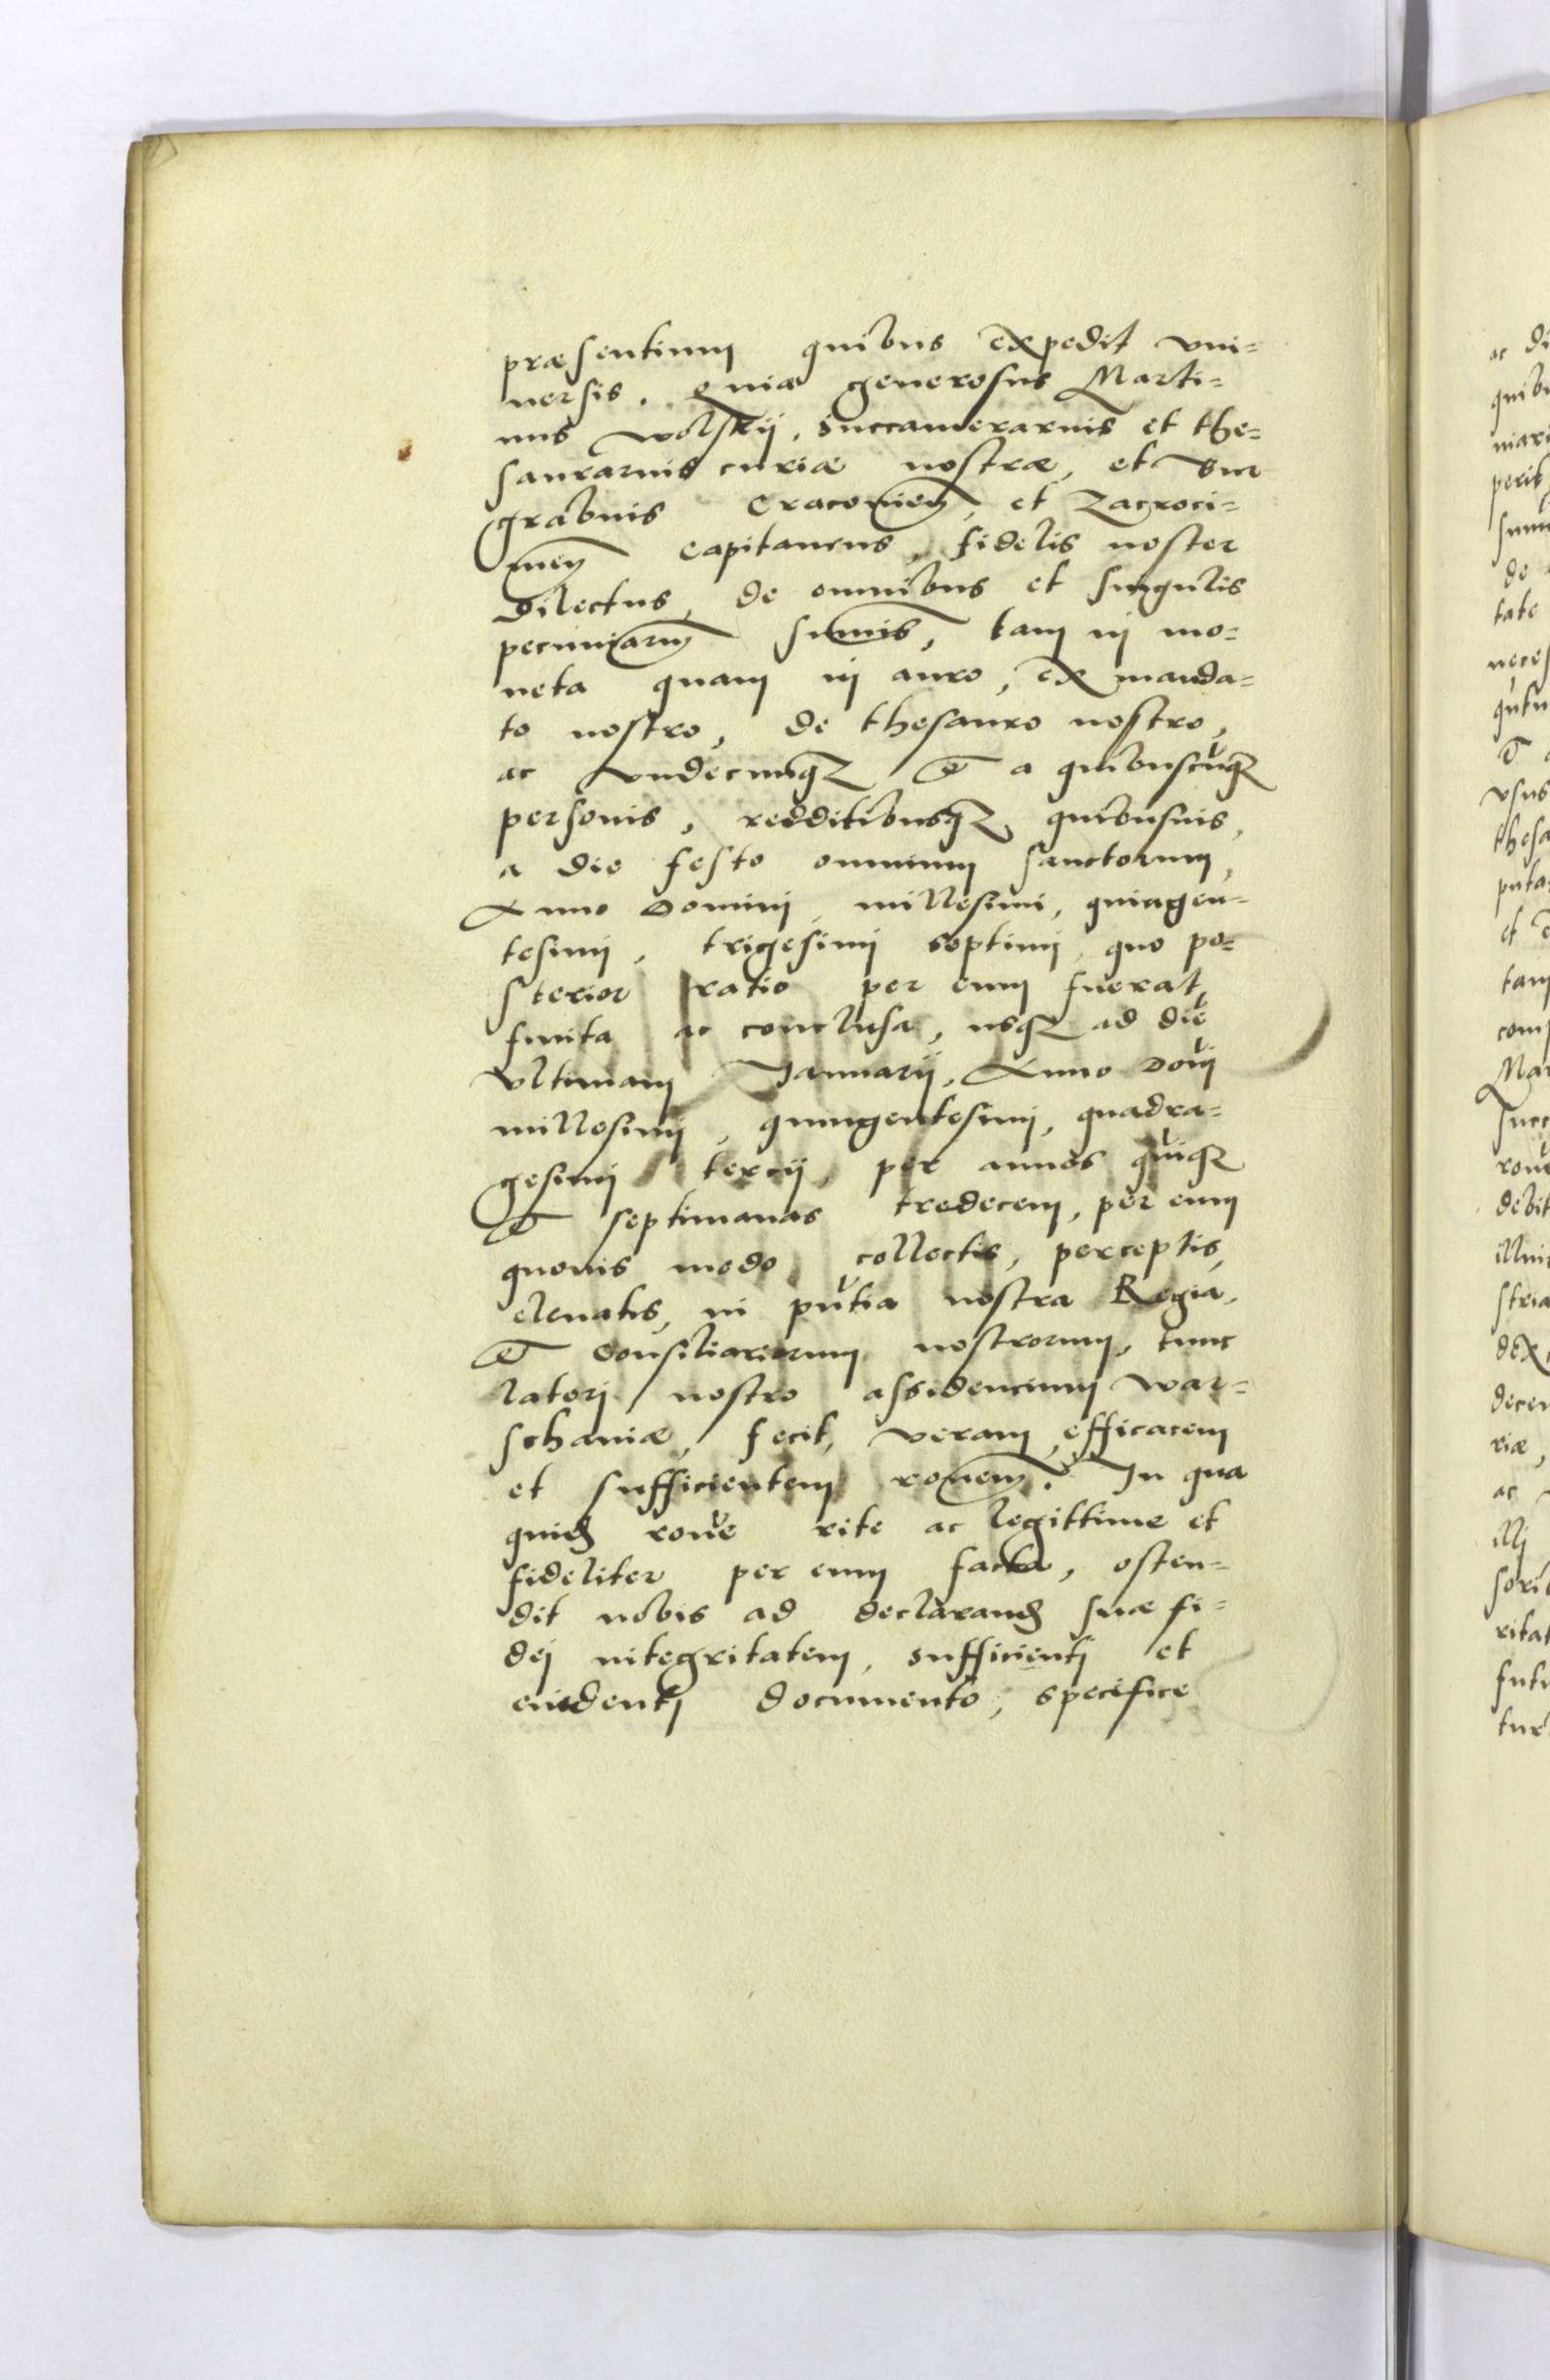 præsentium quibus expedit vni=
uersis. Quia generosus Marti=
nus Wolskij, Succamerarius et the=
saurarius curiæ nostræ, et Bur
grabius Cracouien̄, et Zacroci=
men̄ Capitaneus, fidelis noster
Dilectus, de omnibus et singulis
pecuniarū sum̄is, tam in mo=
neta quam in auro, ex manda=
to nostro, de thesauro nostro,
ac vndecunqȝ et a quibuscūqȝ
personis, redditibusqȝ quibusuis,
a die festo omnium sanctorum,
Anno Domini millesimi, quingen=
tesimi, trigesimi septimi, quo po=
sterior ratio per eum fuerat
finita ac conclusa, usqȝ ad diē
vltimam Januarij, Anno Dōni
millesimi, quingentesimi, quadra=
gesimi tercij, per annos quīqȝ
et septimanas tredecem, per eum
quouis modo collectis, perceptis,
eleuatis, in pn̄tia nostra Regia,
et Consiliariorum nostrorum, tunc
laterj nostro assidencium War=
schauiæ, fecit, veram, efficacem
et sufficientem ron̄em. In qua
quidē ron̄e rite ac legittime et
fideliter per eum facta, osten=
dit nobis ad declarandā suæ fi=
dej integritatem, sufficientj et
euidentj documento, specifice
ac di
quibu